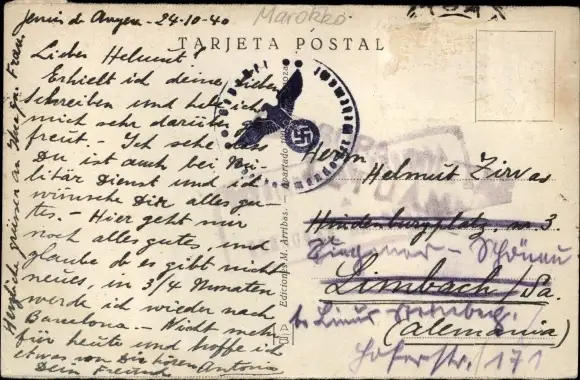 Jenuis de Anyera - 24-10-40
Marokko
TARJETA POSTAL
Lieber Helmut!
Erhielt ich deine lieben
Schreiben und habe ich
mich sehr darüber ge-
freut. - Ich sehe dass
Du ist auch bei Mi-
litär Dienst und ich
wünsche Dir alles gu-
tes. - Hier geht mir
noch alles gutes, und
glaube da es gibt nicht
neues, in 3/4 Monaten
werde ich wieder nach
Barcelona. - Nicht mehr
für heute und hoffe ich
etwas von Dir hören Antonio
Dein Freund
Herzliche grüssen an Ihre Frau
Ediciones M. Arribas. - Apartado
Herrn
Helmut Zirvas
Hindenburgplatz, nr. 3.
Schönau
Limbach / Sa.
(Alemania)
Hoferstr. 171